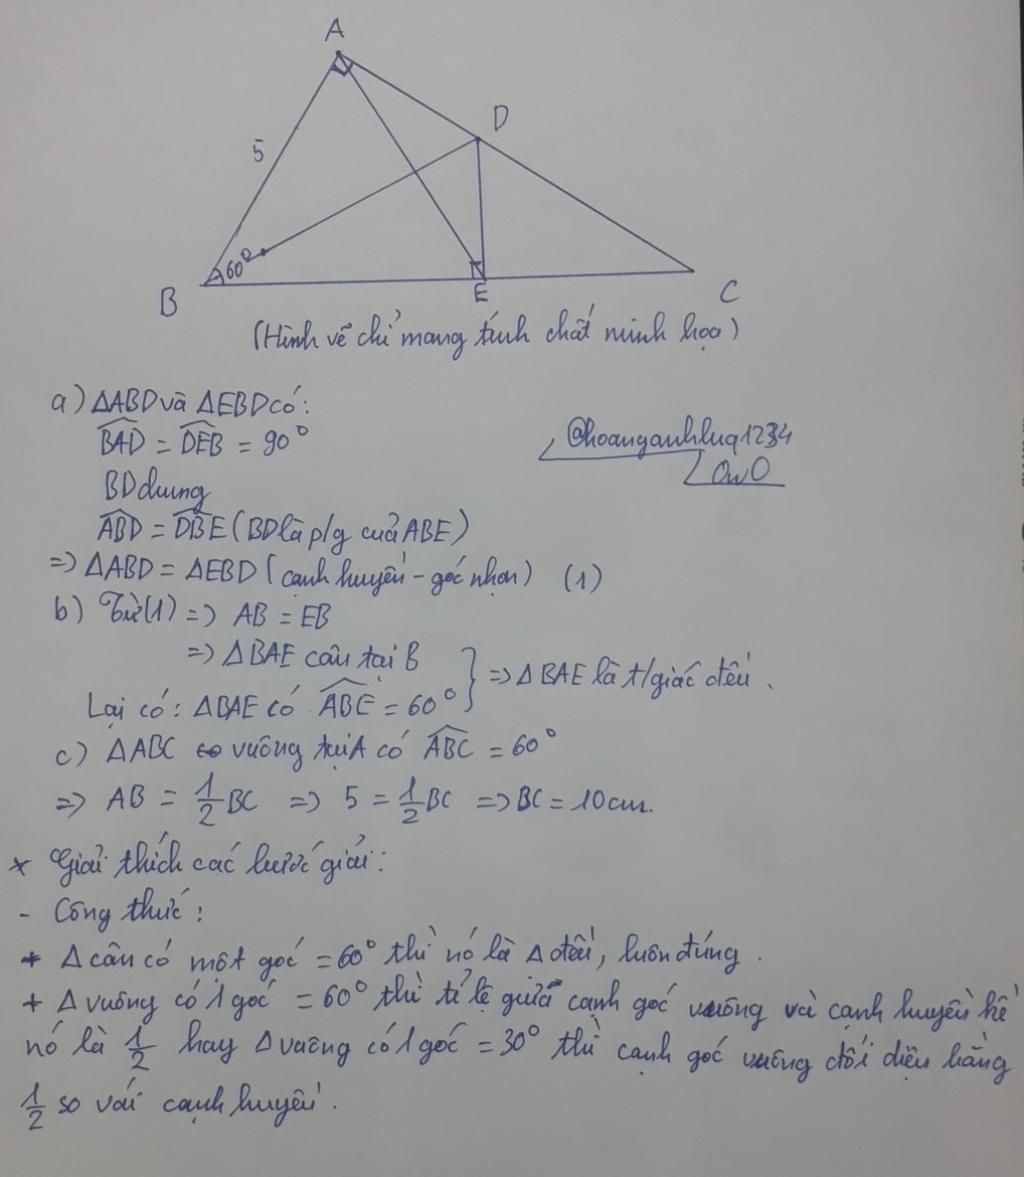 A
D
5
60°
B
E
C
(Hình vẽ chỉ mang tính chất minh họa)
a) ΔABD và ΔEBD có:
@hoanganhluq1234
OwO
BAD = DEB = 90°
BD chung
ABD = DBE (BD là p/g của ABE)
=> ΔABD = ΔEBD (cạnh huyền - góc nhọn) (1)
b) Từ (1) => AB = EB
=> ΔBAE cân tại B
Lại có: ΔBAE có ABE = 60° } => ΔBAE là t/giác đều.
c) ΔABC vuông tại A có ABC = 60°
=> AB = 1/2 BC => 5 = 1/2 BC => BC = 10cm.
* Giải thích các bước giải:
- Công thức:
+ Δ cân có một góc = 60° thì nó là Δ đều, luôn đúng.
+ Δ vuông có 1 góc = 60° thì tỉ lệ giữa cạnh góc vuông và cạnh huyền kề
nó là 1/2 hay Δ vuông có 1 góc = 30° thì cạnh góc vuông đối diện bằng
1/2 so với cạnh huyền.